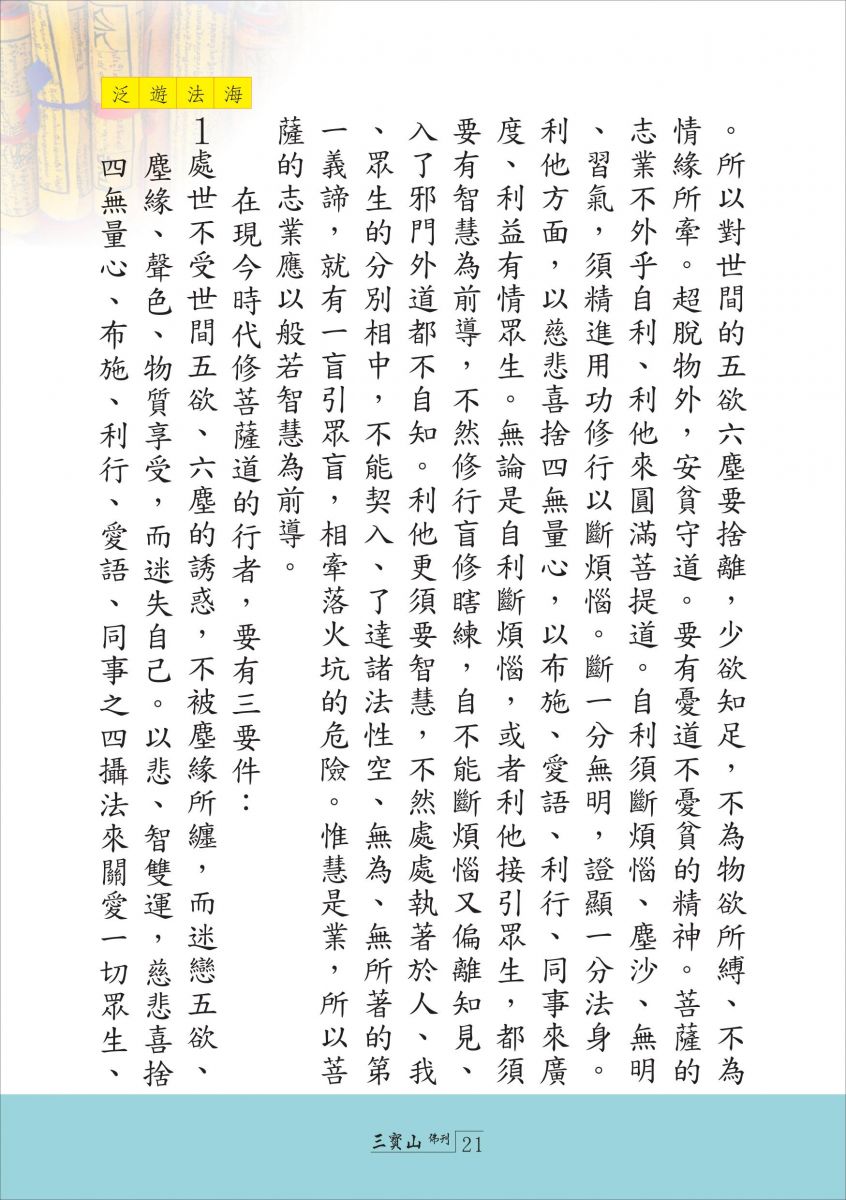 泛遊法海
。所以對世間的五欲六塵要捨離，少欲知足，不為物欲所縛、不為
情緣所牽。超脫物外，安貧守道。要有憂道不憂貧的精神。菩薩的
志業不外乎自利、利他來圓滿菩提道。自利須斷煩惱、塵沙、無明
、習氣，須精進用功修行以斷煩惱。斷一分無明，證顯一分法身。
利他方面，以慈悲喜捨四無量心，以布施、愛語、利行、同事來廣
度、利益有情眾生。無論是自利斷煩惱，或者利他接引眾生，都須
要有智慧為前導，不然修行盲修瞎練，自不能斷煩惱又偏離知見、
入了邪門外道都不自知。利他更須要智慧，不然處處執著於人、我
、眾生的分別相中，不能契入、了達諸法性空、無為、無所著的第
一義諦，就有一盲引眾盲，相牽落火坑的危險。惟慧是業，所以菩
薩的志業應以般若智慧為前導。
在現今時代修菩薩道的行者，要有三要件：
1處世不受世間五欲、六塵的誘惑，不被塵緣所纏，而迷戀五欲、
塵緣、聲色、物質享受，而迷失自己。以悲、智雙運，慈悲喜捨
四無量心、布施、利行、愛語、同事之四攝法來關愛一切眾生、
三寶山 佛刊 21